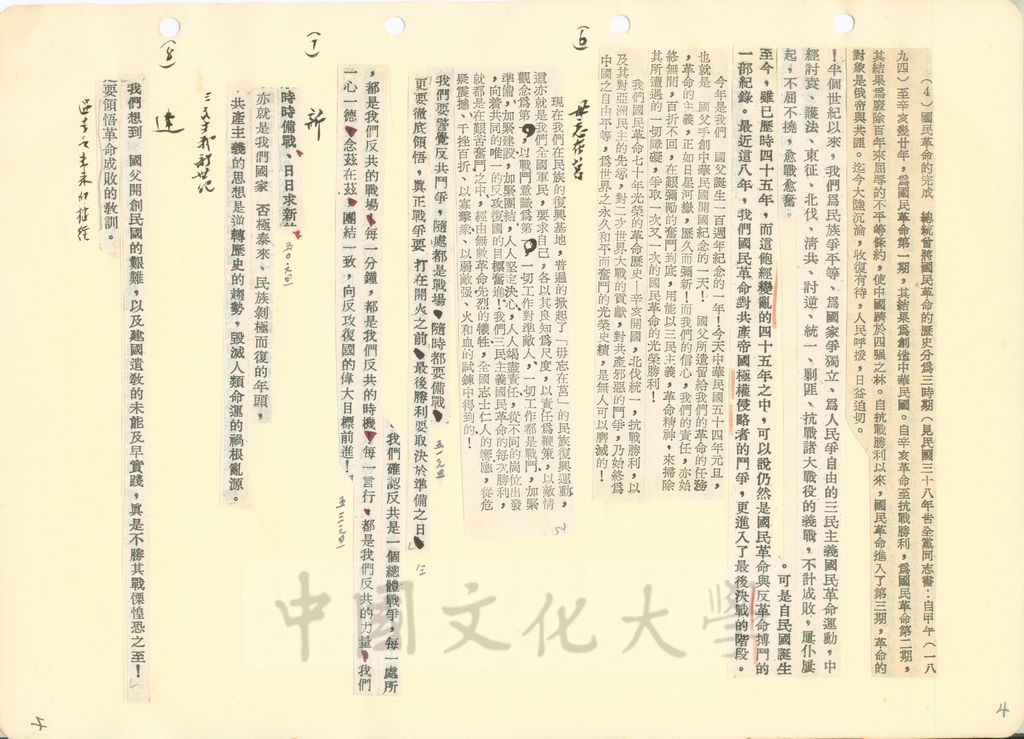 (4)國民革命的完成　總統曾將國民革命的歷史分為三時期(見民國三十八年告全黨同志書:自甲午(一八
九四)至辛亥幾廿年,為國民革命第一期,其結果為創造中華民國。自辛亥革命至抗戰勝利,為國民革命第二期,
其結果為廢除百年來屈辱的不平等條約,使中國躋於四强之林。自抗戰勝利以來,國民革命進入了第三期,革命的
對象是俄帝與共匪。迄今大陸沉淪,收復有待,人民呼援,日益迫切。
!半個世紀以來,我們為民族爭平等、為國家爭獨立、為人民爭自由的三民主義國民革命運動,中
經討袁、護法、東征、北伐、清共、討逆、統一、剿匪、抗戰諸大戰役的義戰,不計成敗,屢仆屢
起,不屈不撓,愈戰愈奮。
。可是自民國誕生
至今,雖已歷時四十五年,而這飽經變亂的四十五年之中,可以說仍然是國民革命與反革命搏鬥的
一部紀錄。最近這八年,我們國民革命對共產帝國極權侵略者的鬥爭,更進入了最後決戰的階段。
今年是我們　國父誕生一百週年紀念的一年!今天中華民國五十四年元旦,
也就是　國父手創中華民國開國紀念的一天!　國父所遺留給我們的革命的任務
,革命的主義,正如日星河嶽,歷久而彌新!而我們的信心,我們的責任,亦始
終無間,百折不回,在艱彌勵的奮鬥到底,用能以三民主義,革命精神,來掃除
其所遭遇的一切障礙,爭取一次又一次的國民革命的光榮勝利!
我們國民革命七十年光榮的革命歷史—辛亥開國,北伐統一,抗戰勝利,以
及其對亞洲民主的先導,對二次世界大戰的貢獻,對共產邪惡的鬥爭,乃始終為
中國之自由平等,為世界之永久和平而奮鬥的光榮史績,是無人可以磨滅的!
(6)
毋忘在莒
現在我們在民族的復興基地,普遍的掀起了「毋忘在莒」的民族復興運動,
這亦就是我們全國軍民,要求自己,各以其良知為尺度,以責任為鞭策,以敵情
觀念為第,以戰鬥意識為第,一切工作對準敵人、一切工作都是戰鬥,加緊
準備,加緊建設,加緊團結,人人堅定決心,人人竭盡責任,從不同的崗位出發
,向着共同的唯一的反攻復國的目標奮進!我們三民主義國民革命的每次勝利,
就都是在艱苦奮鬥之中,經由無數革命先烈的犧牲,全國志士仁人的響應,從危
疑震撼、千挫百折、以寡擊眾、以弱敵强、火和血的試鍊中得到的!
54
我們要警覺反共鬥爭,隨處都是戰場、隨時都要備戰、
更要徹底領悟,真正戰爭要打在開火之前、最後勝利要取決於準備之日、
(7)
新
、我們確認反共是一個總體戰爭,每一處所
,都是我們反共的戰場、每一分鐘,都是我們反共的時機、每一言行,都是我們反共的力量、我們
一心一德、念茲在茲、團結一致,向反攻復國的偉大目標前進!
時時備戰、日日求新
亦就是我們國家　否極泰來、民族剝極而復的年頭,
共產主義的思想是逆轉歷史的趨勢,毀滅人類命運的禍根亂源。
(8)
建
我們想到　國父開創民國的艱難,以及建國遺教的未能及早實踐,真是不勝其戰慄惶恐之至!
要領悟革命成敗的教訓。
中國文化大學
4
5